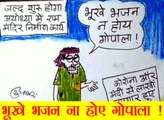 जल्द शुरु होगा
अयोध्या में राम
मंदिर निर्माण कार्य
भूखे भजन न
होय गोपाला !
कोरोना और
मंदी से लाखों
भूखे भजन ना होए गोपाला !